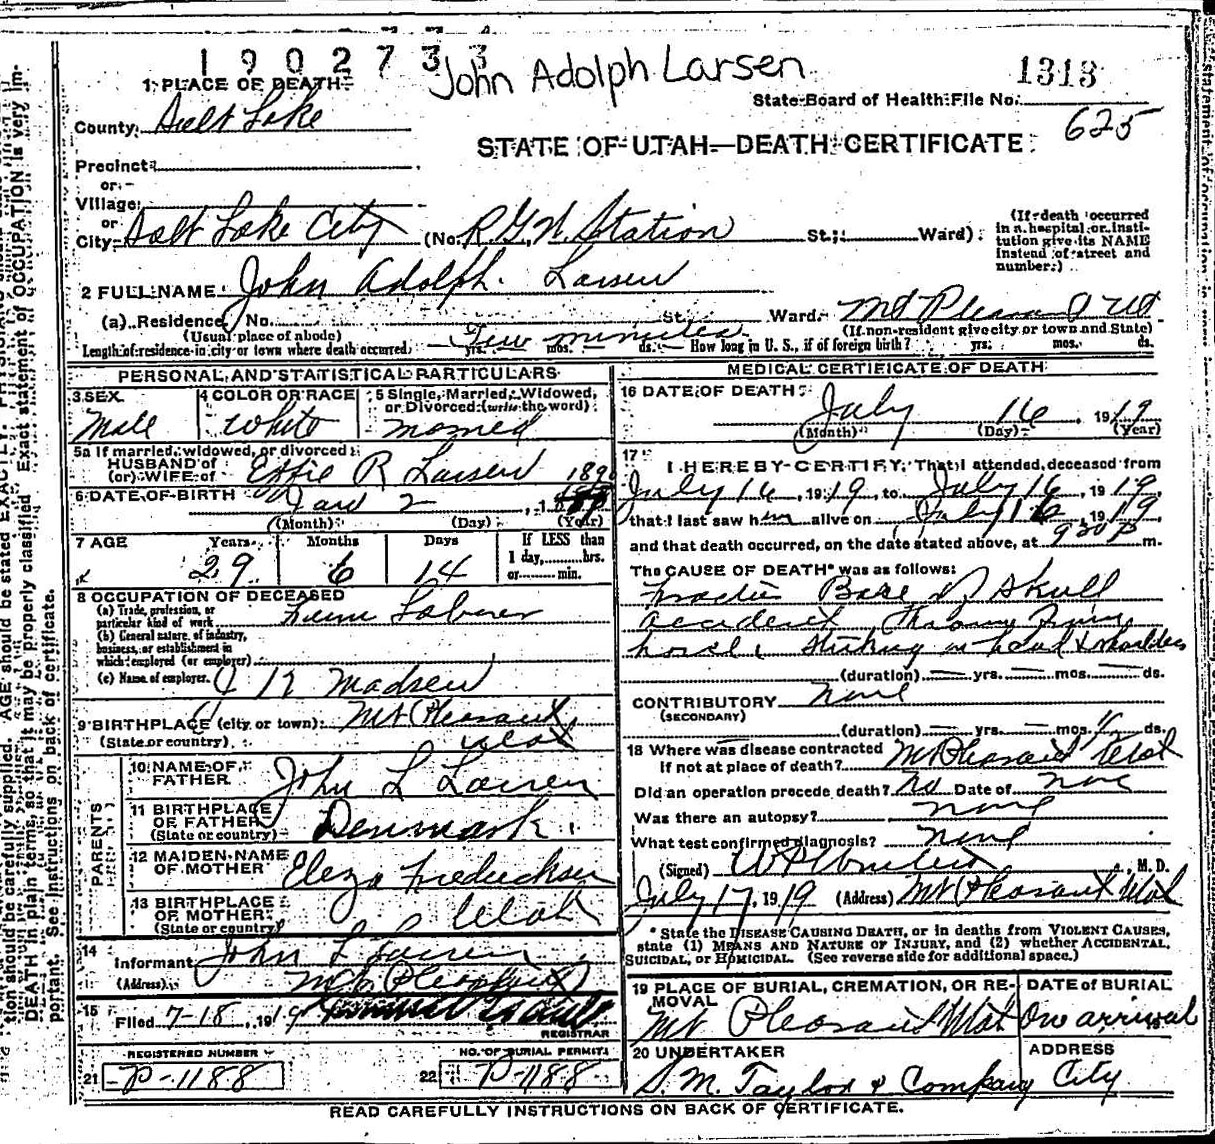 1902733
John Adolph Larsen
1313
State Board of Health File No.
625
1 PLACE OF DEATH
County, Salt Lake
STATE OF UTAH—DEATH CERTIFICATE
Precinct
or
Village
or
City Salt Lake City (No. R.G.W. Station St.; Ward)
(If death occurred in a hospital or insti-
tution give its NAME
instead of street and
number.)
2 FULL NAME John Adolph Larsen
(a) Residence, No. St. Ward. Mt Pleasant Ut
(Usual place of abode) (If non-resident give city or town and State)
Length of residence in city or town where death occurred, Few minutes yrs. mos. ds. How long in U. S., if of foreign birth? yrs. mos. ds.
PERSONAL AND STATISTICAL PARTICULARS
3 SEX Male
4 COLOR OR RACE White
5 Single, Married, Widowed,
or Divorced (write the word) Married
5a If married, widowed, or divorced
HUSBAND of
(or) WIFE of Effie R Larsen
6 DATE OF BIRTH Jan 2
(Month) (Day) (Year)
7 AGE Years 29 Months 6 Days 14
If LESS than
1 day, hrs.
or min.
8 OCCUPATION OF DECEASED
(a) Trade, profession, or
particular kind of work Farm Laborer
(b) General nature of industry,
business, or establishment in
which employed (or employer)
(c) Name of employer. Madsen
9 BIRTHPLACE (city or town) Mt Pleasant
(State or country) Utah
PARENTS
10 NAME OF
FATHER John L Larsen
11 BIRTHPLACE
OF FATHER
(State or country) Denmark
12 MAIDEN NAME
OF MOTHER Eliza Fredericksen
13 BIRTHPLACE
OF MOTHER
(State or country) Utah
14
Informant John L Larsen
(Address) Mt. Pleasant
15
Filed 7-18, 1919
REGISTRAR
REGISTERED NUMBER
21 P-1188
NO. OF BURIAL PERMIT
22 P-1188
MEDICAL CERTIFICATE OF DEATH
16 DATE OF DEATH July 16 1919
(Month) (Day) (Year)
17
I HEREBY CERTIFY, That I attended deceased from
July 16, 1919, to July 16, 1919,
that I last saw him alive on July 16, 1919
and that death occurred, on the date stated above, at 930 P m.
The CAUSE OF DEATH* was as follows:
Fracture Base of Skull
accident Thrown from
horse, striking on head & shoulders
(duration) yrs. mos. ds.
CONTRIBUTORY None
(SECONDARY)
(duration) yrs. mos. ds.
18 Where was disease contracted
If not at place of death? Mt Pleasant Utah
Did an operation precede death? No Date of None
Was there an autopsy? None
What test confirmed diagnosis? None
(Signed) M. D.
July 17, 1919 (Address) Mt Pleasant Utah
* State the DISEASE CAUSING DEATH, or in deaths from VIOLENT CAUSES,
state (1) MEANS AND NATURE OF INJURY, and (2) whether ACCIDENTAL,
SUICIDAL, or HOMICIDAL. (See reverse side for additional space.)
19 PLACE OF BURIAL, CREMATION, OR RE-
MOVAL
Mt Pleasant Utah
DATE of BURIAL
On arrival
20 UNDERTAKER
S. M. Taylor & Company
ADDRESS
City
READ CAREFULLY INSTRUCTIONS ON BACK OF CERTIFICATE.
tion should be carefully supplied. AGE should be stated EXACTLY.
DEATH in plain terms, so that it may be properly classified. Exact statement of OCCUPATION is very im-
portant. See instructions on back of certificate.